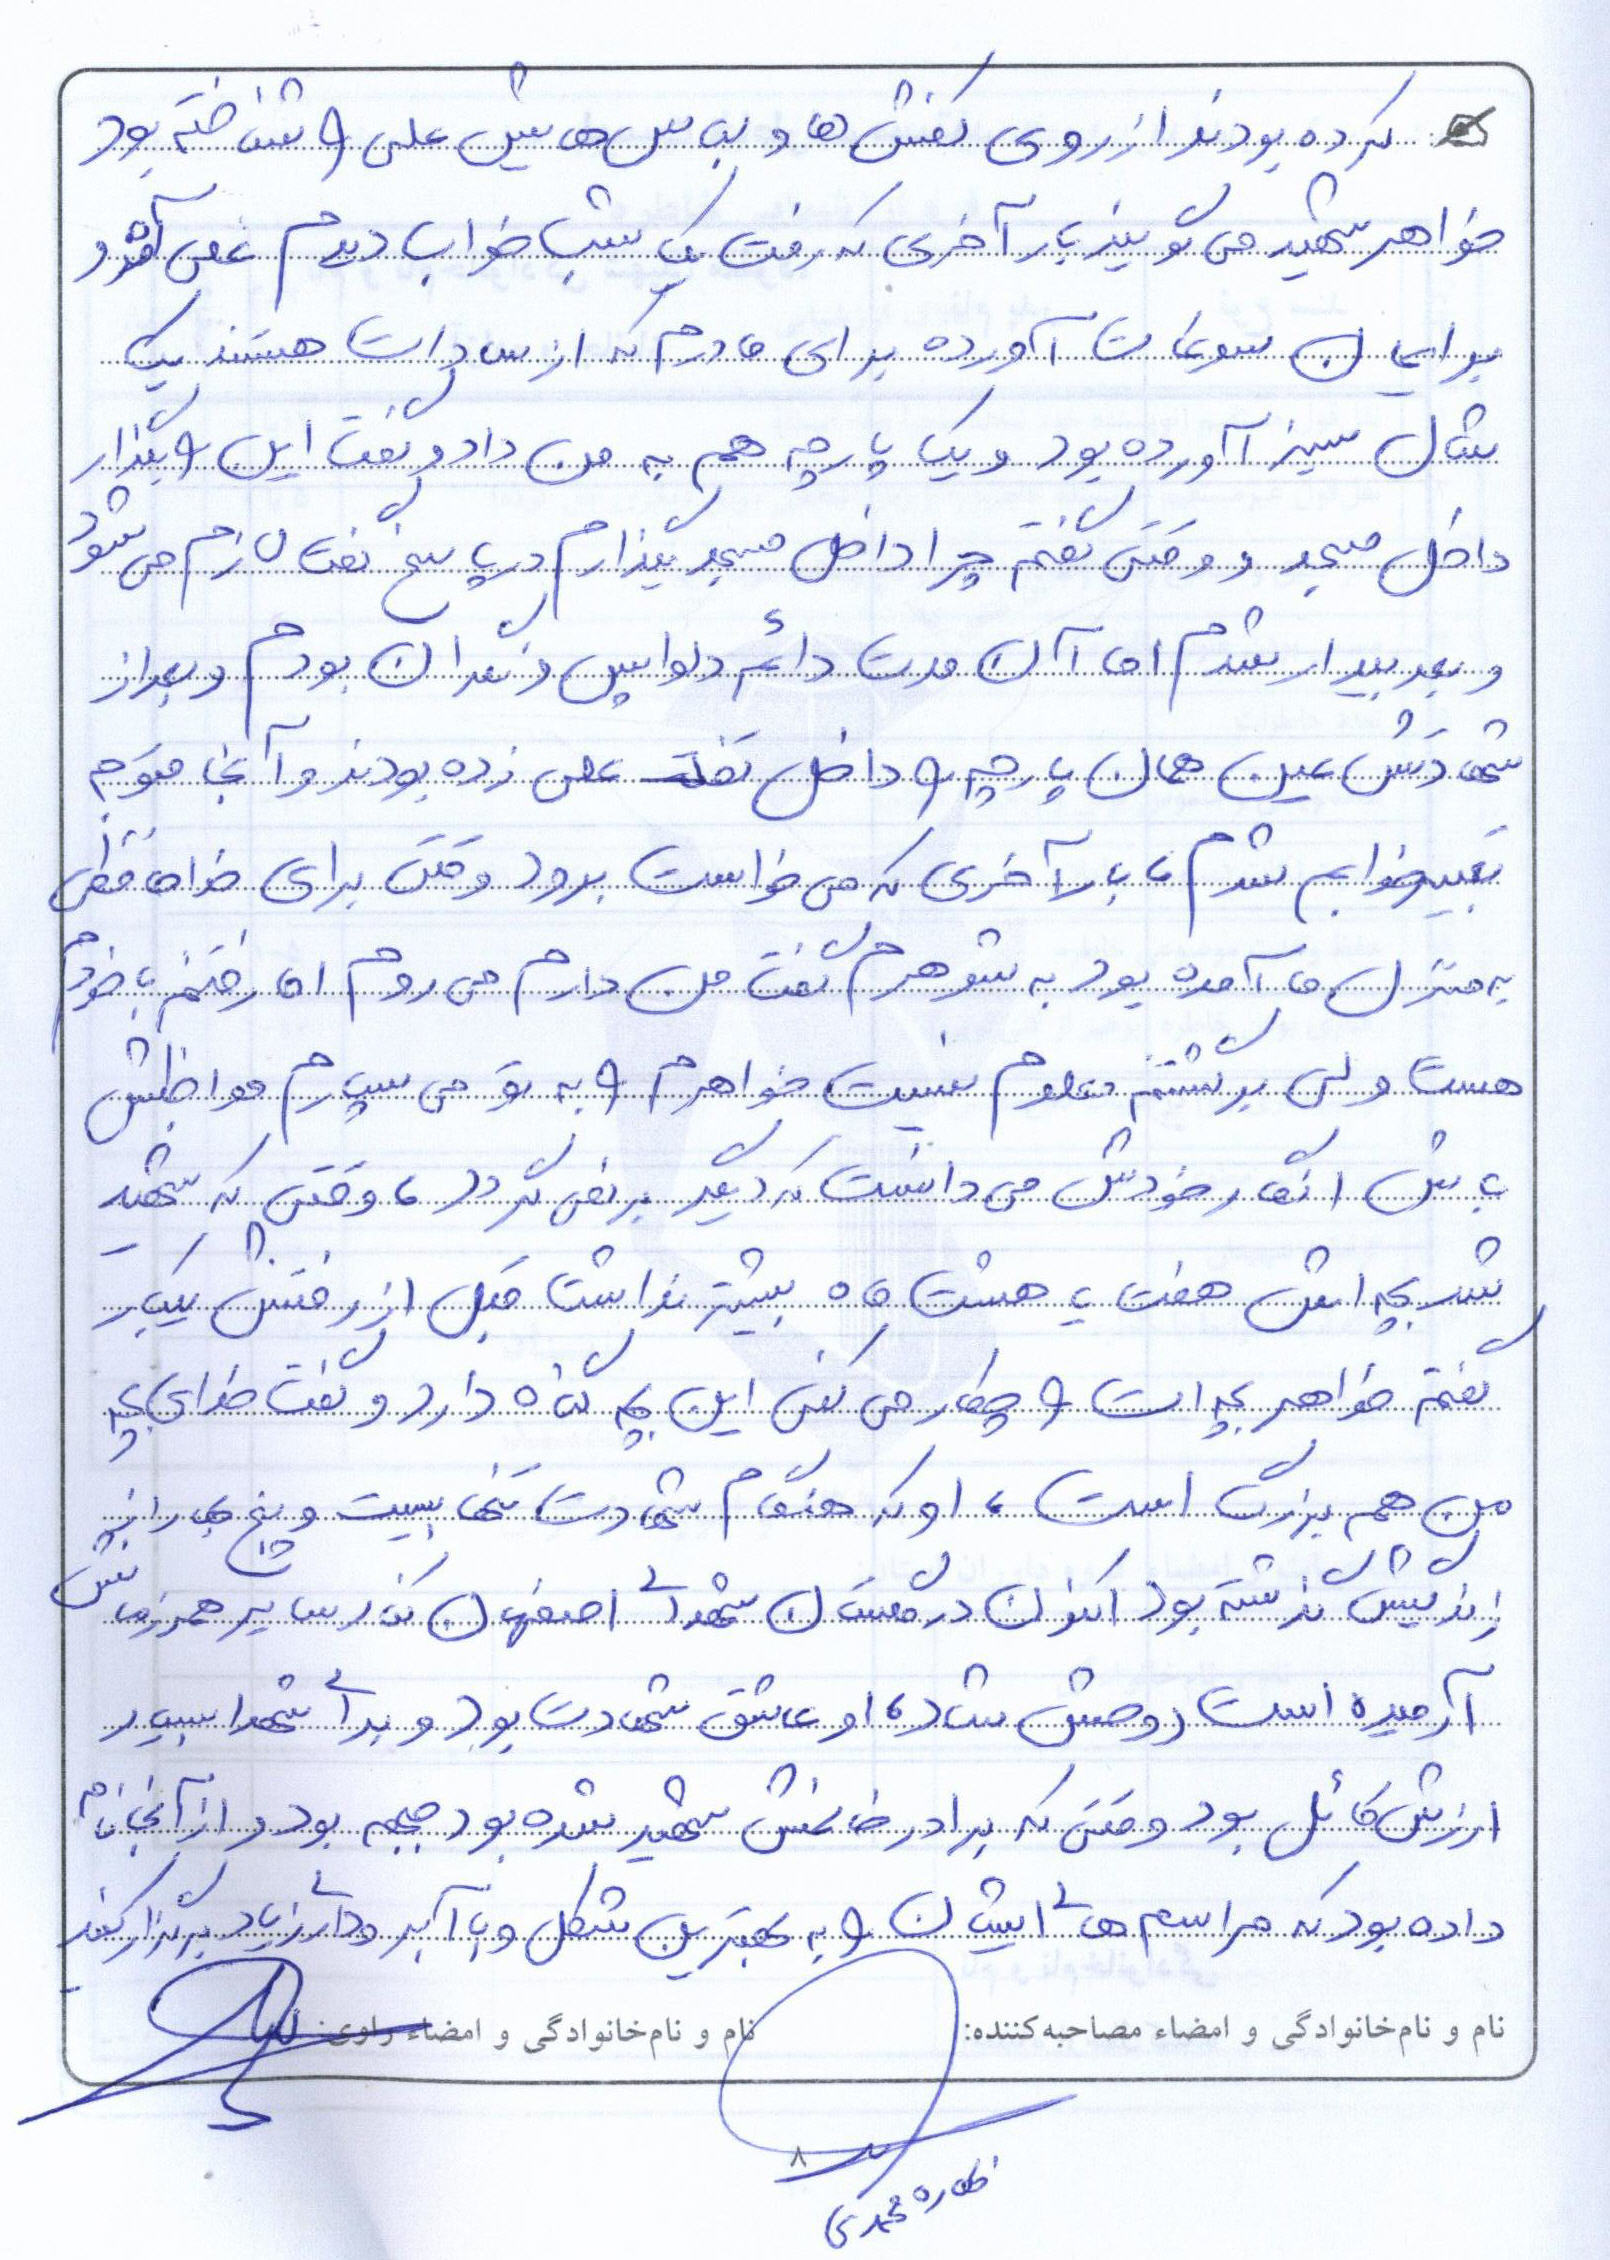 کرده بودند از روی کفش ها و لباس هایش علی را شناخته بود
خواهر شهید می گویند بار آخری که رفت یک شب خواب دیدم علی آمد و
برایمان سوغات آورده برای مادرم که از سادات هستند یک
شال سبز آورده بود و یک پارچه هم به من داد و گفت این را بگذار
داخل مسجد و وقتی گفتم چرا داخل مسجد بگذارم در پاسخ گفت لازم می شود
و بعد بیدار شدم اما آن مدت دائم دلواپس و نگران بودم و بعد از
شهادتش عین همان پارچه را داخل علی زده بودند و آنجا متوجه
تعبیر خوابم شدم، بار آخری که می خواست برود وقتی برای خداحافظی
به منزل ما آمده بود به شوهرم گفت من دارم می روم اما رفتنم با خودم
هست ولی برگشتنم معلوم نیست خواهرم را به تو می سپارم مواظبش
باش انگار خودش می دانست که دیگر بر نمی گردد، وقتی که شهید
شد بچه اش هفت یا هشت ماه بیشتر نداشت قبل از رفتنش یکبار
گفتم خواهر بچه ات را چطار می کنی این بچه گناه دارد و گفت خدای بچه
من هم بزرگ است، او که هنگام شهادت تنها بیست و پنج بهار از
زندگیش گذشته بود اکنون در گلستان شهدای اصفهان کنار سایر همرزمانش
آرمیده است روحش شاد، او عاشق شهادت بود و برای شهدا بسیار
ارزش قائل بود وقتی که برادر خانمش شهید شده بود جبهه بود و از آنجا نامه
داده بود که مراسم های ایشان را به بهترین شکل و با آبرو داری زیاد برگزار کنید
نام و نام‌خانوادگی و امضاء مصاحبه‌کننده: نام و نام‌خانوادگی و امضاء راوی:
۸
محمدی